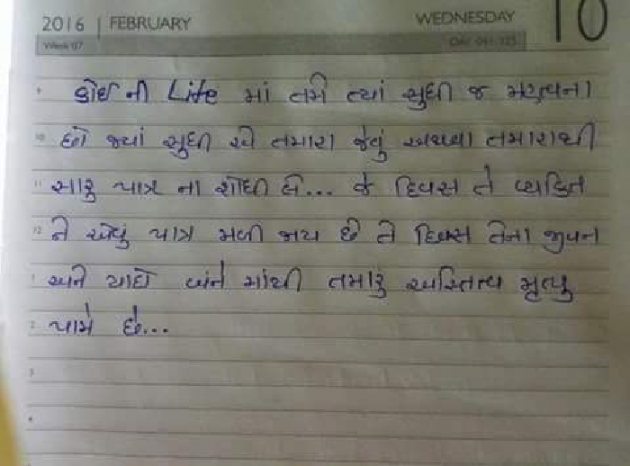 2016 | FEBRUARY WEDNESDAY 10
Week 07
કોઈ ની Life માં તમે ત્યાં સુધી જ મહત્વના
છો જ્યાં સુધી એ તમારા જેવું અથવા તમારાથી
સારુ પાત્ર ના શોધી લે... જે દિવસ તે વ્યક્તિ
ને એવું પાત્ર મળી જાય છે તે દિવસ તેના જીવન
અને યાદો બંને માંથી તમારું અસ્તિત્વ મૃત્યુ
પામે છે...